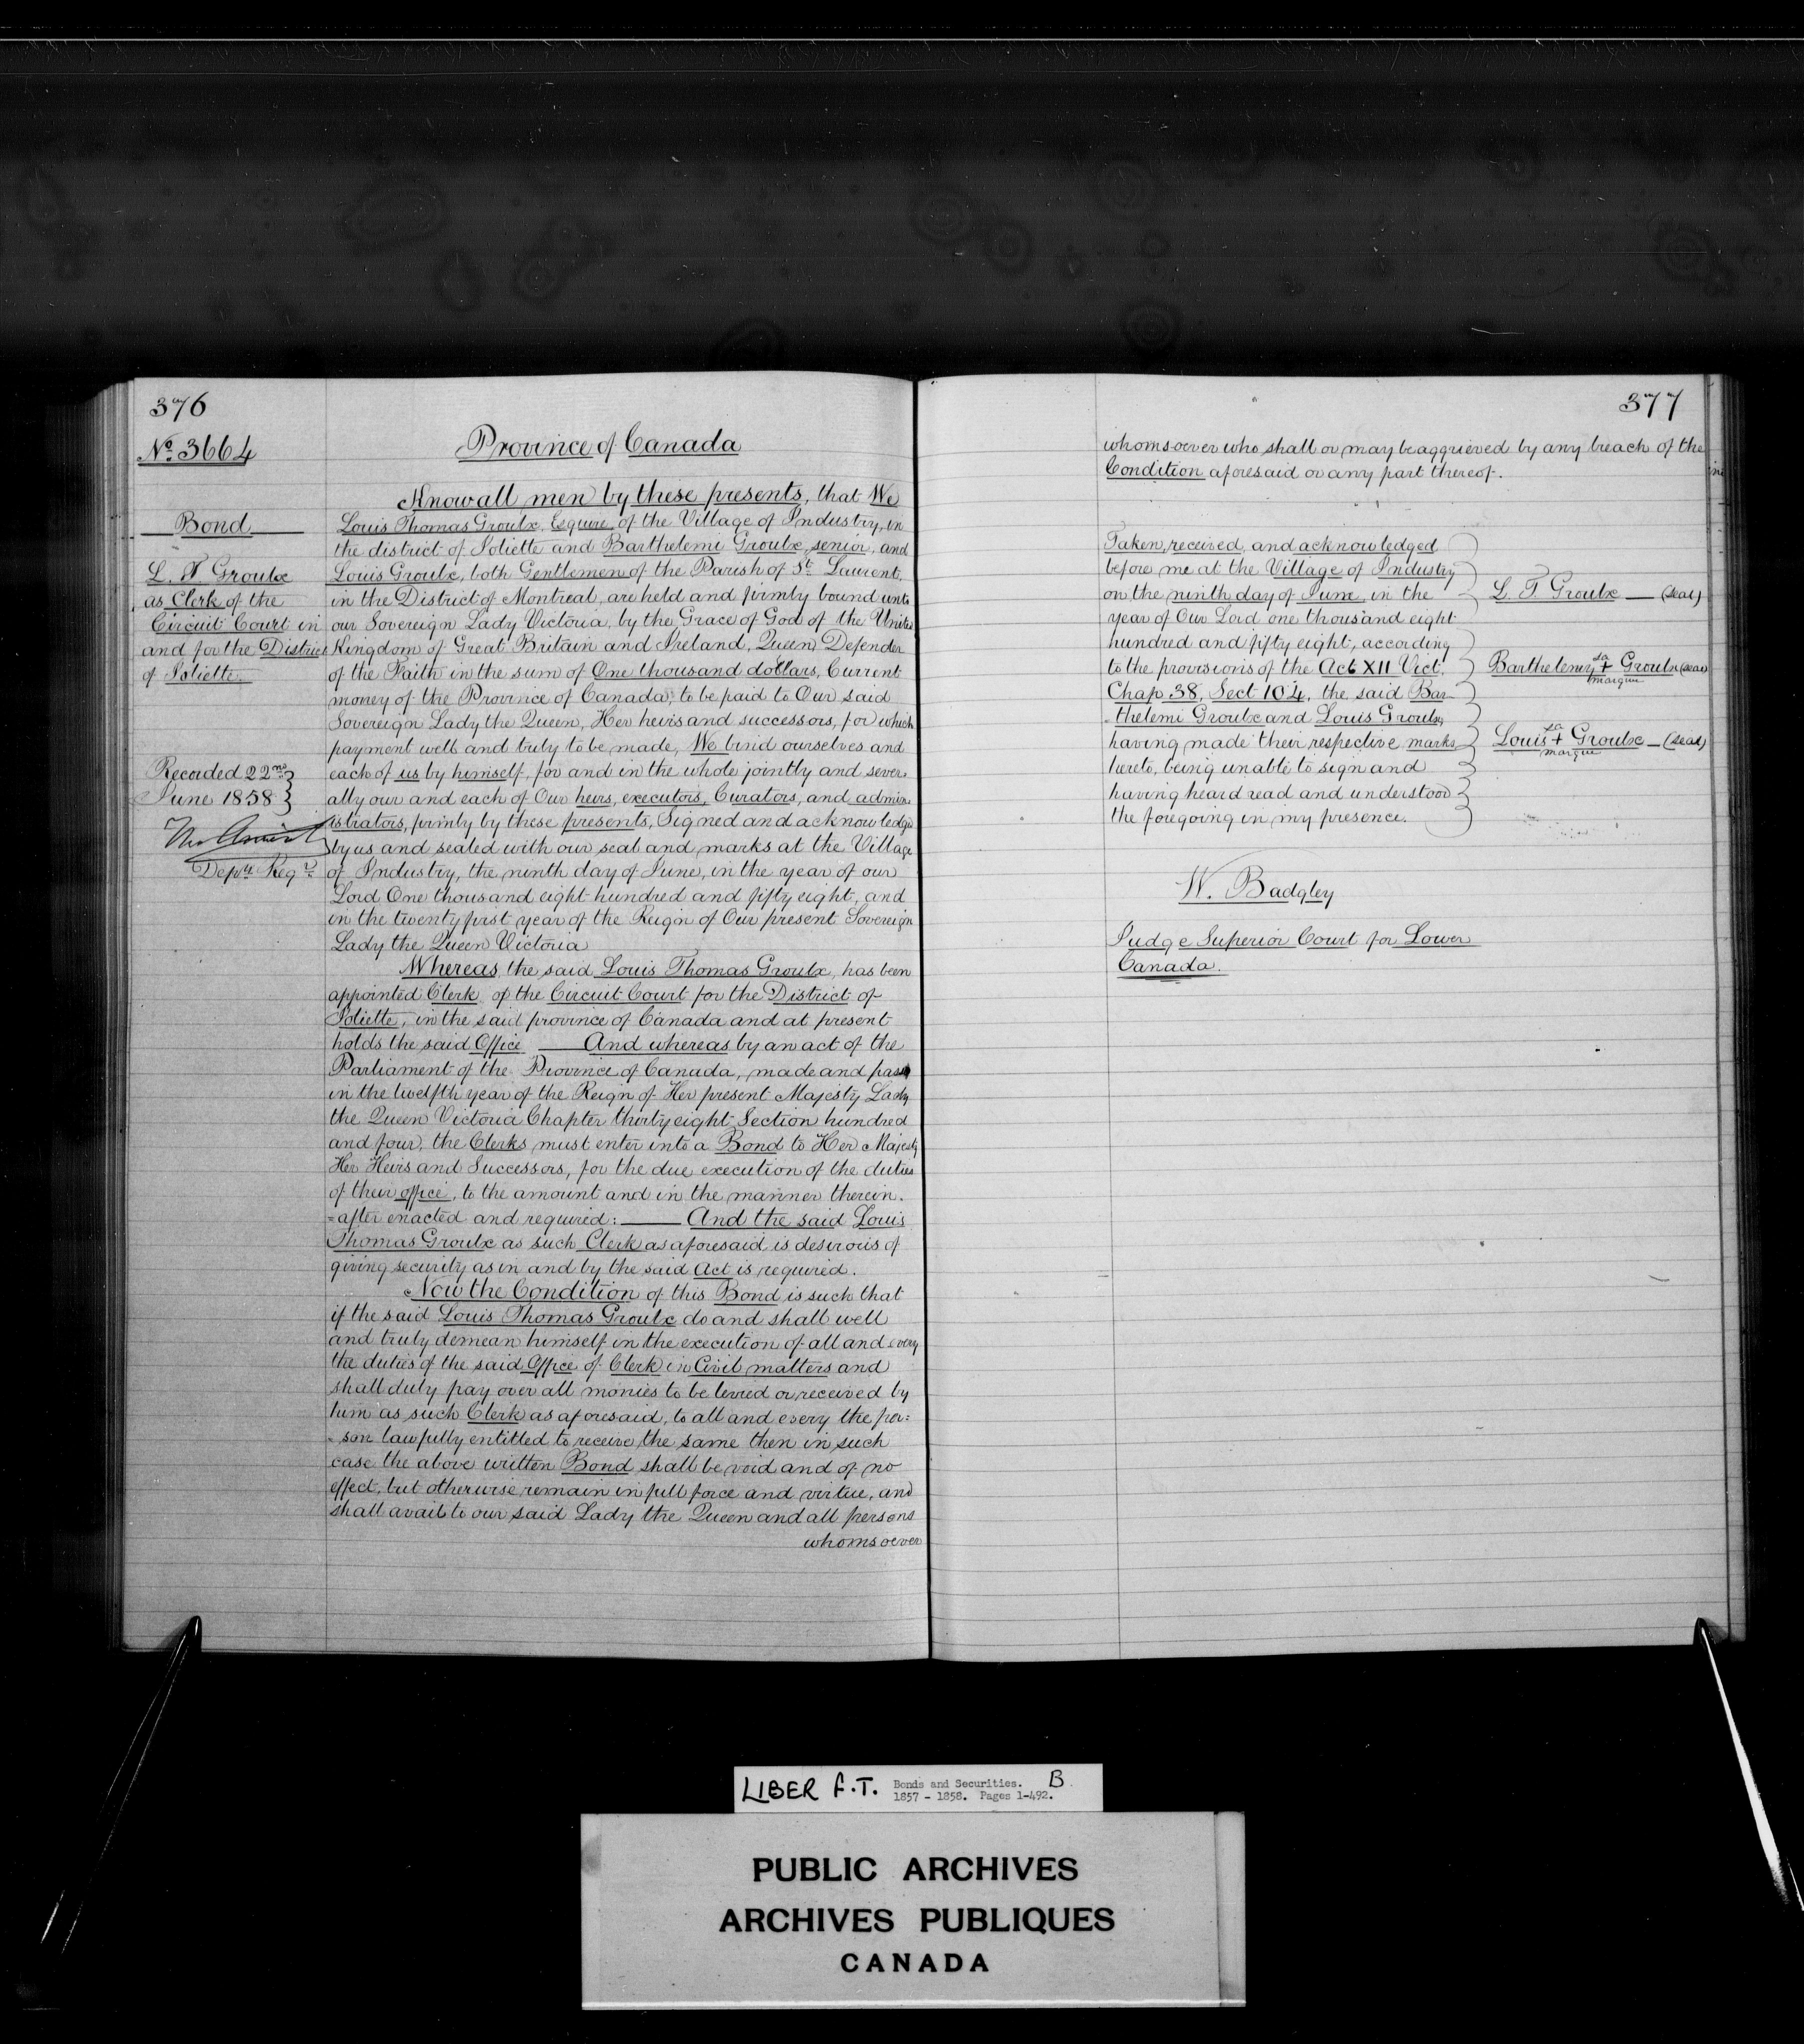 376
No. 3664
Province of Canada
Know all men by these presents, that We
Bond
Louis Thomas Groulx, Esquire, of the Village of Industry, in
the district of Joliette and Barthelemi Groulx, senior, and
L. T Groulx
Louis Groulx, both Gentlemen of the Parish of St. Laurent,
as Clerk of the
in the District of Montreal, are held and firmly bound unto
Circuit Court in
our Sovereign Lady Victoria, by the Grace of God of the United
and for the District
Kingdom of Great Britain and Ireland, Queen, Defender
of Joliette.
of the Faith in the sum of One thousand dollars, Current
money of the Province of Canada, to be paid to Our said
Sovereign Lady the Queen, Her heirs and successors, for which
payment well and truly to be made, We bind ourselves and
Recorded 22nd
each of us by himself, for and in the whole jointly and sever-
June 1858
ally our and each of Our heirs, executors, Curators, and admin-
istrators, firmly by these presents, Signed and acknowledge
by us and sealed with our seal and marks at the Village
Depy. Regr.
of Industry, the ninth day of June, in the year of our
Lord One thousand eight hundred and fifty eight, and
in the twenty first year of the Reign of Our present Sovereign
Lady the Queen Victoria
Whereas, the said Louis Thomas Groulx, has been
appointed Clerk of the Circuit Court for the District of
Joliette, in the said province of Canada and at present
holds the said Office And whereas by an act of the
Parliament of the Province of Canada, made and pass
in the twelfth year of the Reign of Her present Majesty Lady
the Queen Victoria Chapter thirty eight Section hundred
and four, the Clerks must enter into a Bond to Her Majesty
Her Heirs and Successors, for the due execution of the duties
of their office, to the amount and in the manner therein-
=after enacted and required: And the said Louis
Thomas Groulx as such Clerk as aforesaid is desirous of
giving security as in and by the said Act is required.
Now the Condition of this Bond is such that
if the said Louis Thomas Groulx do and shall well
and truly demean himself in the execution of all and every
the duties of the said Office of Clerk in Civil matters and
shall duly pay over all monies to be levied or received by
him as such Clerk as aforesaid, to all and every the per=
=son lawfully entitled to receive the same then in such
case the above written Bond shall be void and of no
effect, but otherwise remain in full force and virtue, and
shall avail to our said Lady the Queen and all persons
whomsoever
377
whomsoever who shall or may be aggrieved by any breach of the
Condition aforesaid or any part thereof.
Taken, received, and acknowledged
before me at the Village of Industry
on the ninth day of June, in the
L. T Groulx (Seal)
year of Our Lord one thousand eight
hundred and fifty eight, according
to the provisions of the Act XII Vict.
Barthelemy sa + marque Groulx (Seal)
Chap 38, Sect 104, the said Bar-
-thelemi Groulx and Louis Groulx,
having made their respective marks
Louis sa + marque Groulx (Seal)
hereto, being unable to sign and
having heard read and understood
the foregoing in my presence.
W. Badgley
Judge Superior Court for Lower
Canada.
LIBER F.T. Bonds and Securities. B
1857 - 1858. Pages 1-492.
PUBLIC ARCHIVES
ARCHIVES PUBLIQUES
CANADA